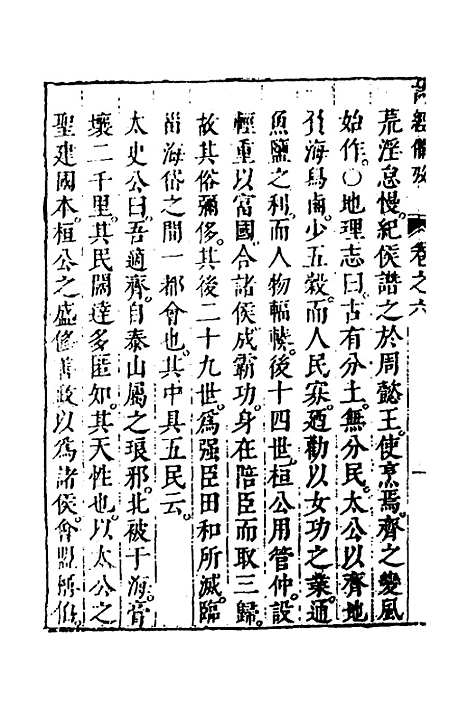 詩經備攷 卷之六 一
荒淫怠慢。紀侯譖之於周懿王。使烹焉。齊之變風
始作。○地理志曰。古有分土。無分民。太公以齊地
負海舄鹵。少五穀。而人民寡。廼勸以女功之業。通
魚鹽之利。而人物輻輳。後十四世。桓公用管仲。設
輕重以富國。合諸侯成霸功。身在陪臣。而取三歸。
故其俗彌侈。其後二十九世。爲强臣田和所滅。臨
甾海岱之間一都會也。其中具五民云。
太史公曰。吾適齊。自泰山屬之琅邪。北被于海。膏
壤二千里。其民闊達多匿知。其天性也。以太公之
聖建國本。桓公之盛修善政。以爲諸侯會盟。稱伯。